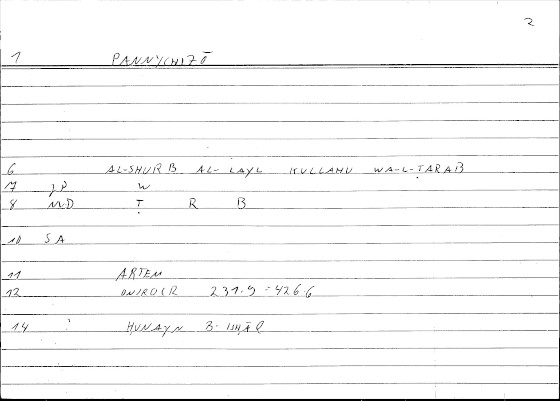 2
1 PANNYCHIZŌ
6 AL-SHURB AL-LAYL KULLAHU WA-L-ṬARAB
7 W
8 ṬRB
10 SA
11 ARTEM
12 ONIROCR 231.9 = 426.6
14 ḤUNAYN B. ISḤĀQ